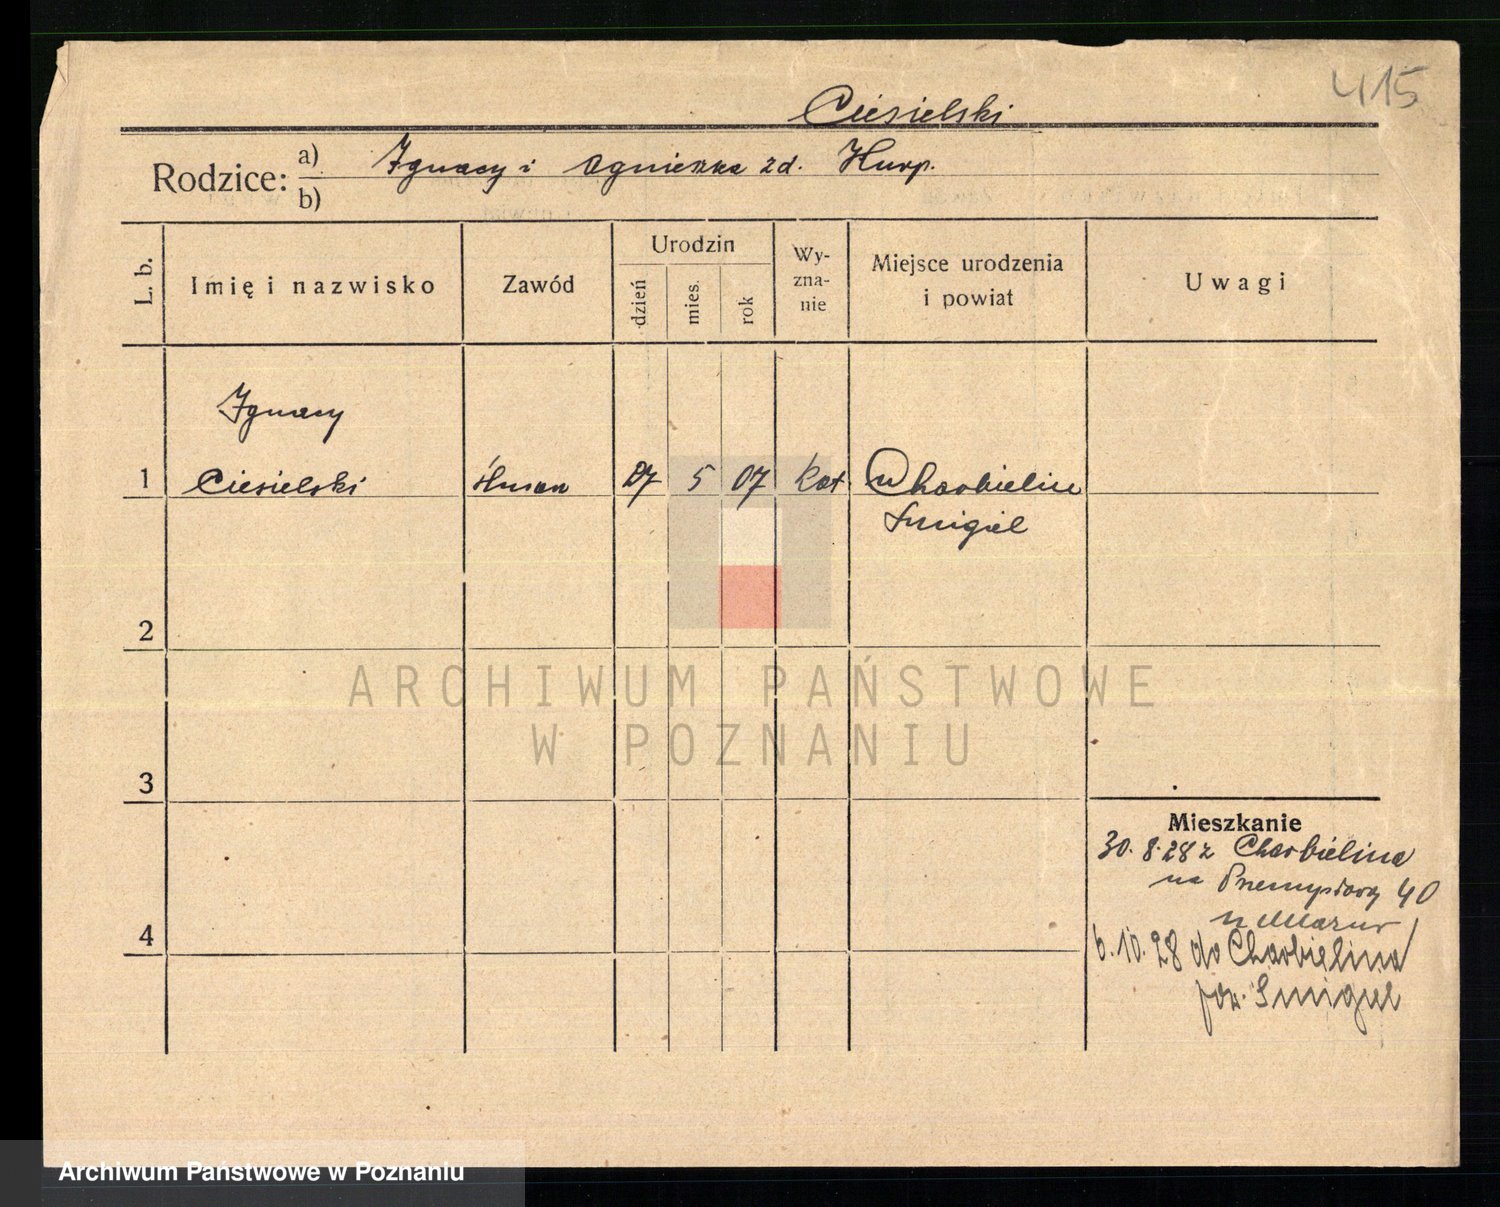 415
Ciesielski
Rodzice: a) Ignacy i Agnieszka zd. Hurp.
b)
L. b.
Imię i nazwisko
Zawód
Urodzin
dzień
mies.
rok
Wy-
zna-
nie
Miejsce urodzenia
i powiat
Uwagi
Ignacy
1 Ciesielski ślusarz 27 5 07 kat w Charbielin
Smigiel
2
3
4
Mieszkanie
30. 8. 28 z Charbielina
na Przemysłową 40
u Mazur
6. 10. 28 do Charbielina
pow. Smigiel
ARCHIWUM PAŃSTWOWE
W POZNANIU
Archiwum Państwowe w Poznaniu